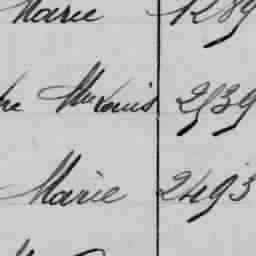 Marie 1289
Louis 2539
Marie 2493